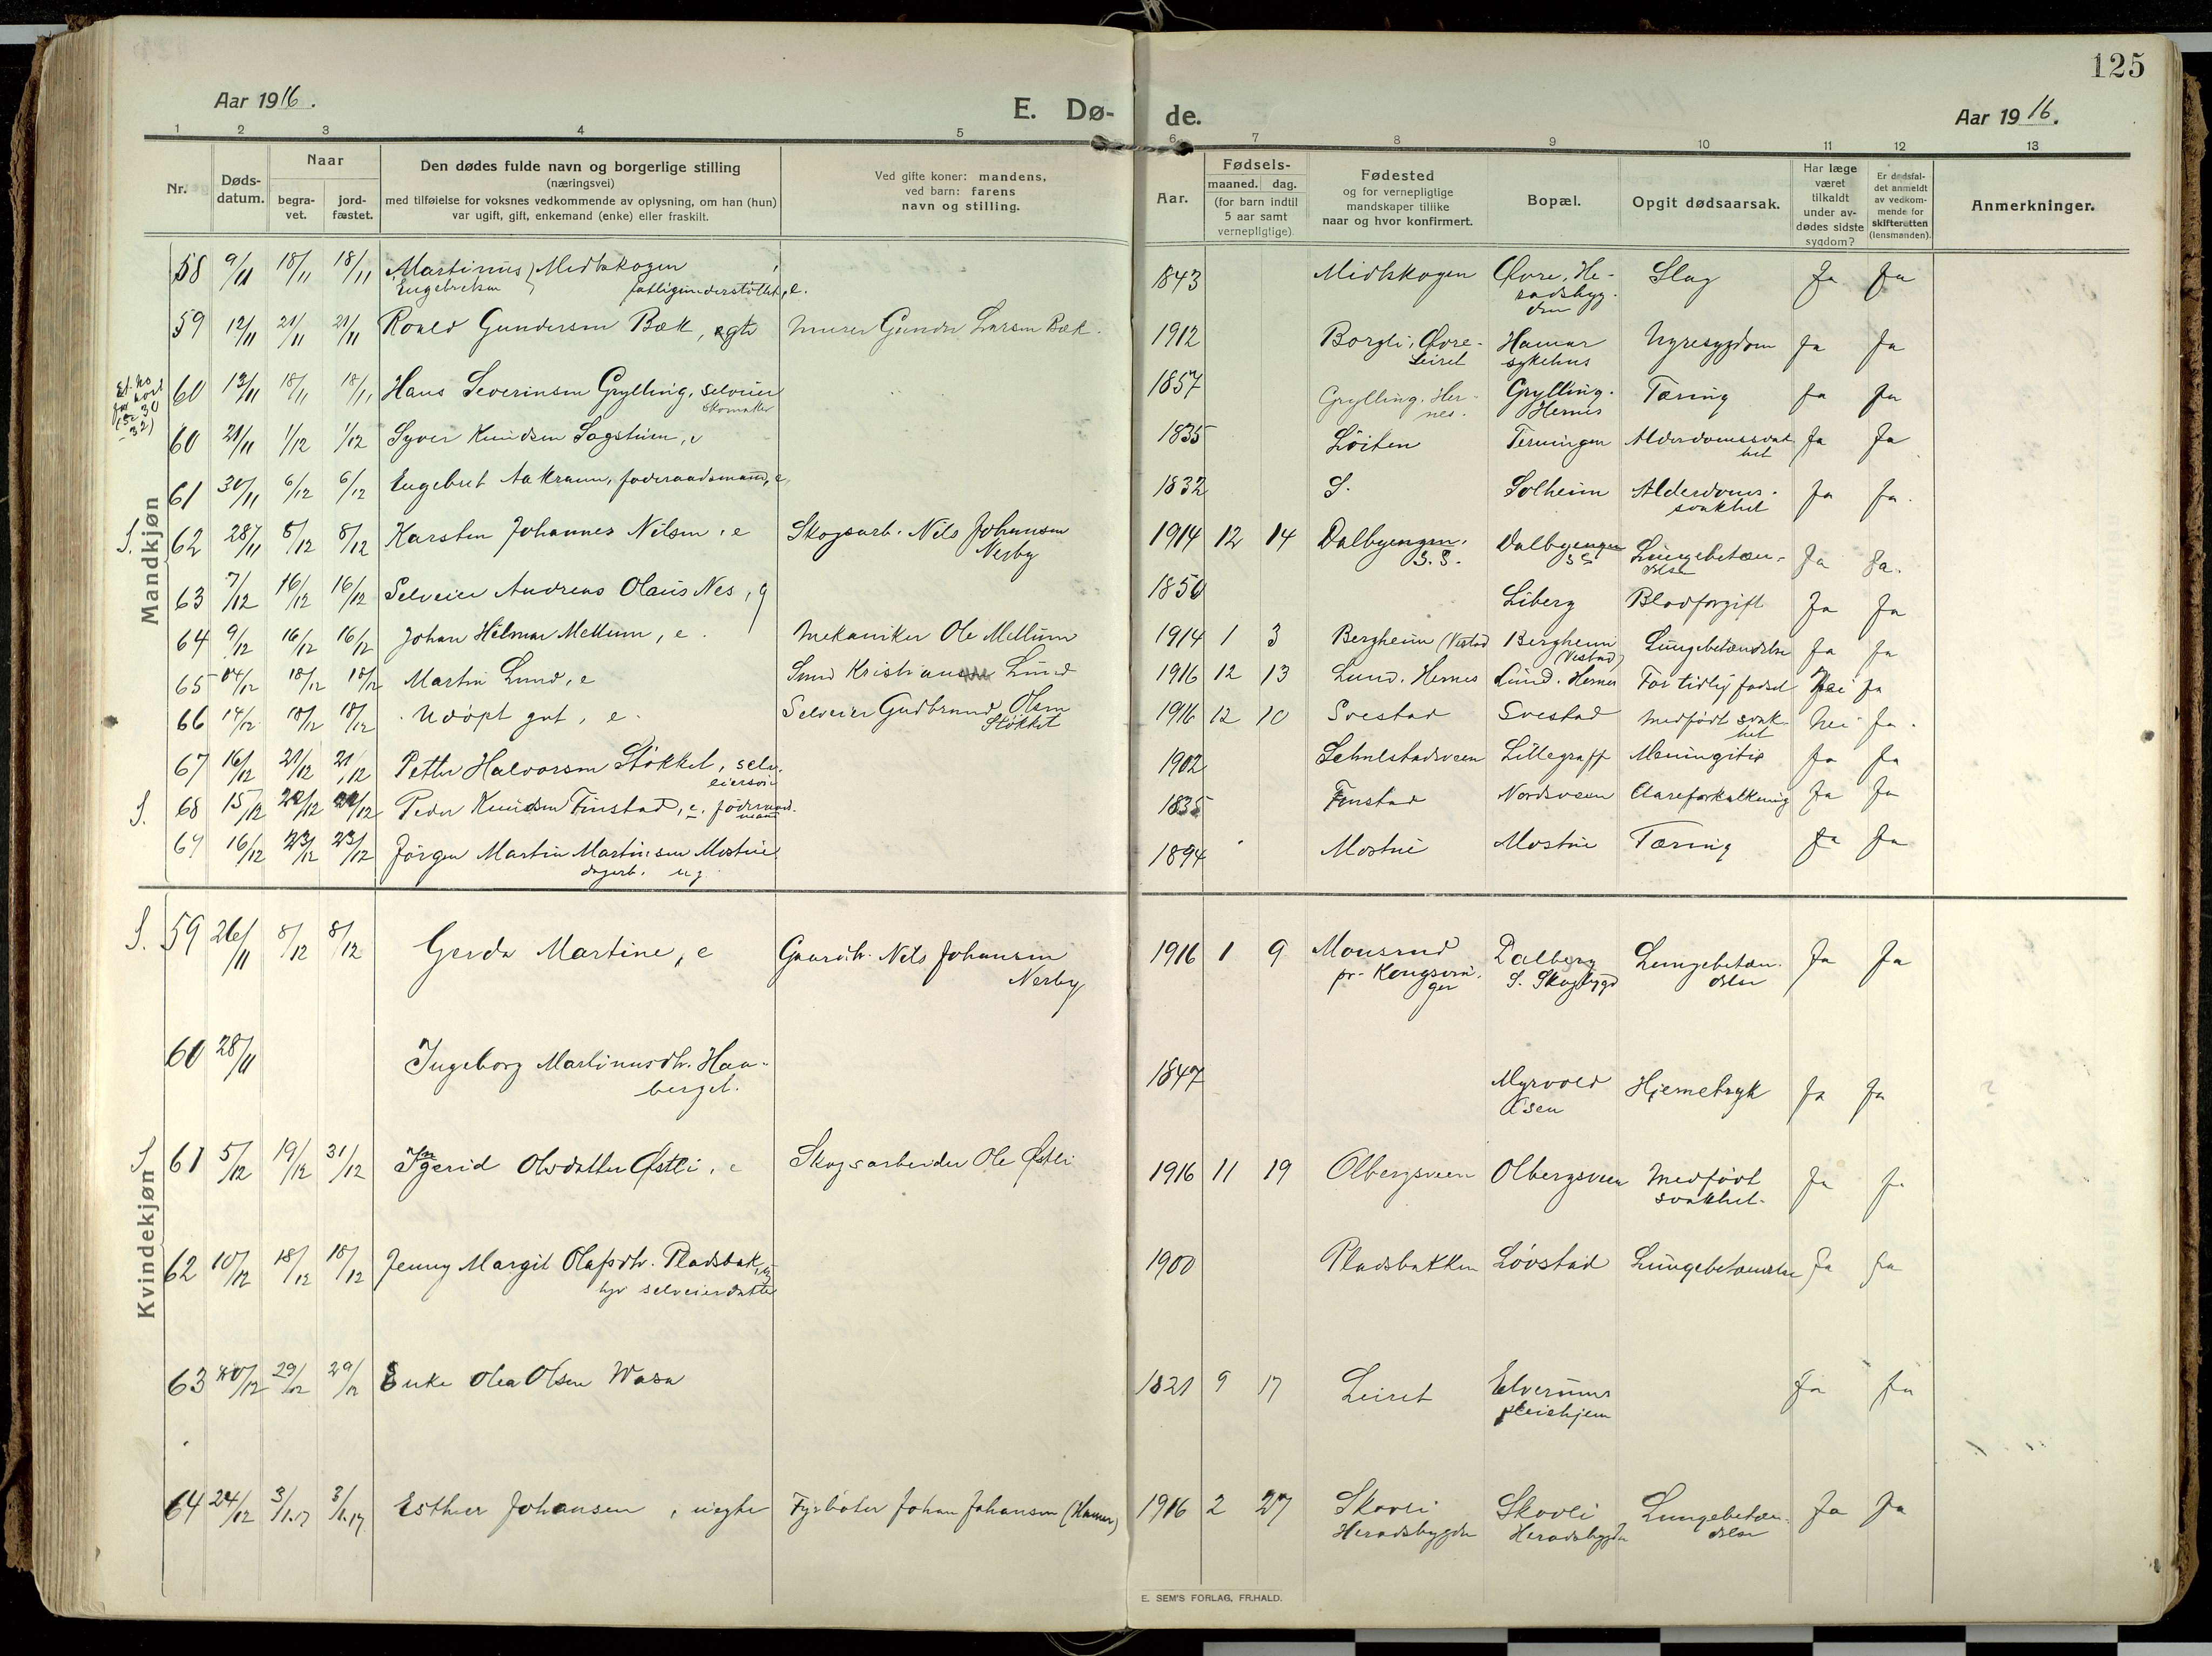 125
Aar 1916.
E. Dø-
de.
Aar 1916.
1 2 3 4 5 6 7 8 9 10 11 12 13
Nr.
Døds-
datum.
Naar
begra-
vet.
jord-
fæstet.
Den dødes fulde navn og borgerlige stilling
(næringsvei)
med tilføielse for voksnes vedkommende av oplysning, om han (hun)
var ugift, gift, enkemand (enke) eller fraskilt.
Ved gifte koner: mandens,
ved barn: farens
navn og stilling.
Aar.
Fødsels-
maaned. dag.
(for barn indtil
5 aar samt
vernepligtige)
Fødested
og for vernepligtige
mandskaper tillike
naar og hvor konfirmert.
Bopæl.
Opgit dødsaarsak.
Har læge
været
tilkaldt
under av-
dødes sidste
sygdom?
Er dødsfal-
det anmeldt
av vedkom-
mende for
skifteretten
(lensmanden).
Anmerkninger.
Mandkjøn
58 9/11 18/11 18/11 Martinus Engebretsen Midtskogen fattigunderstøttet, e. 1843 Midtskogen Øvre, He-
radsbyg-
den Slag Ja Ja
59 12/11 21/11 21/11 Roald Gundersen Bæk, egte Murer Gunder Larsen Bæk. 1912 Borgli, Øvre- Leiret Hamar sykehus Nyresygdom Ja Ja
60 13/11 18/11 18/11 Hans Severinsen Grylling, selveier skomaker 1857 Grylling. Her-
nes. Grylling. Hernes Tæring Ja Ja
60 21/11 1/12 1/12 Syver Knudsen Sagstuen, e 1835 Löiten Terningen Alderdomssvak-
het Ja Ja
61 30/11 6/12 6/12 Engebret Aakrann, foderaadsmand, e. 1832 S. Solheim Alderdoms-
svakhet Ja Ja.
S. 62 28/11 8/12 8/12 Karsten Johannes Nilsen, e Skogsarb. Nils Johansen Nerby 1914 12 14 Dalbyengen. S.S. Dalbyengen S S Lungebetæn-
delse Ja Ja.
63 7/12 16/12 16/12 Selveier Andreas Olaus Nes, g 1850 Liberg Blodforgift. Ja Ja
64 9/12 16/12 16/12 Johan Hilmar Mellum, e. Mekaniker Ole Mellum 1914 1 3 Bergheim (Vestad Bergheim (Vestad) Lungebetændelse Ja Ja
65 14/12 18/12 18/12 Martin Lund, e Smed Kristian Lund 1916 12 13 Lund. Hernes Lund. Hernes For tidlig fødsel Nei Ja
66 14/12 18/12 18/12 Udöpt gut, e. Selveier Gudbrand Olsen Støkket 1916 12 10 Svestad Svestad Medfødt svak-
het Nei Ja.
67 16/12 21/12 21/12 Petter Halvorsen Støkket, selv-
eiersøn 1902 Schulstadsveen Lillegraff Meningitis Ja Ja
S. 68 15/12 22/12 22/12 Peder Knudsen Finstad, e. föderaad-
mand 1835 Finstad Nordsveen Aareforkalkning Ja Ja
69 16/12 23/12 23/12 Jörgen Martin Martinsen Mostue dagarb. ug. 1894 Mostue Mostue Tæring Ja Ja
Kvindekjøn
S. 59 26/11 8/12 8/12 Gerda Martine, e Gaardbr. Nils Johansen Nerby 1916 1 9 Monsrud pr. Kongsvin-
ger Dalberg S. Skogbygd Lungebetæn-
delse Ja Ja
60 28/11 Ingeborg Martinusdtr. Haa-
berget. 1847 Myrvold Aasen Hjernetryk Ja Ja
S. 61 5/12 19/12 31/12 Ingerid Olsdatter Østli, e Skogsarbeider Ole Østli 1916 11 19 Olbergsveen Olbergsveen Medfødt svakhet. Ja Ja
62 10/12 18/12 18/12 Jenny Margit Olafsdtr. Pladsbak, ug selveierdatter 1900 Pladsbakken Løvstad Lungebetændelse Ja Ja
63 20/12 29/12 29/12 Enke Olea Olsen Wasa 1821 9 17 Leiret Elverums pleiehjem Ja Ja
64 24/12 3/1.17 3/1.17 Esther Johansen, uegte Fyrbøter Johan Johansen (Hamar) 1916 2 27 Skovli Heradsbygden Skovli Heradsbygden Lungebetæn-
delse Ja Ja
E. SEM'S FORLAG, FR.HALD.